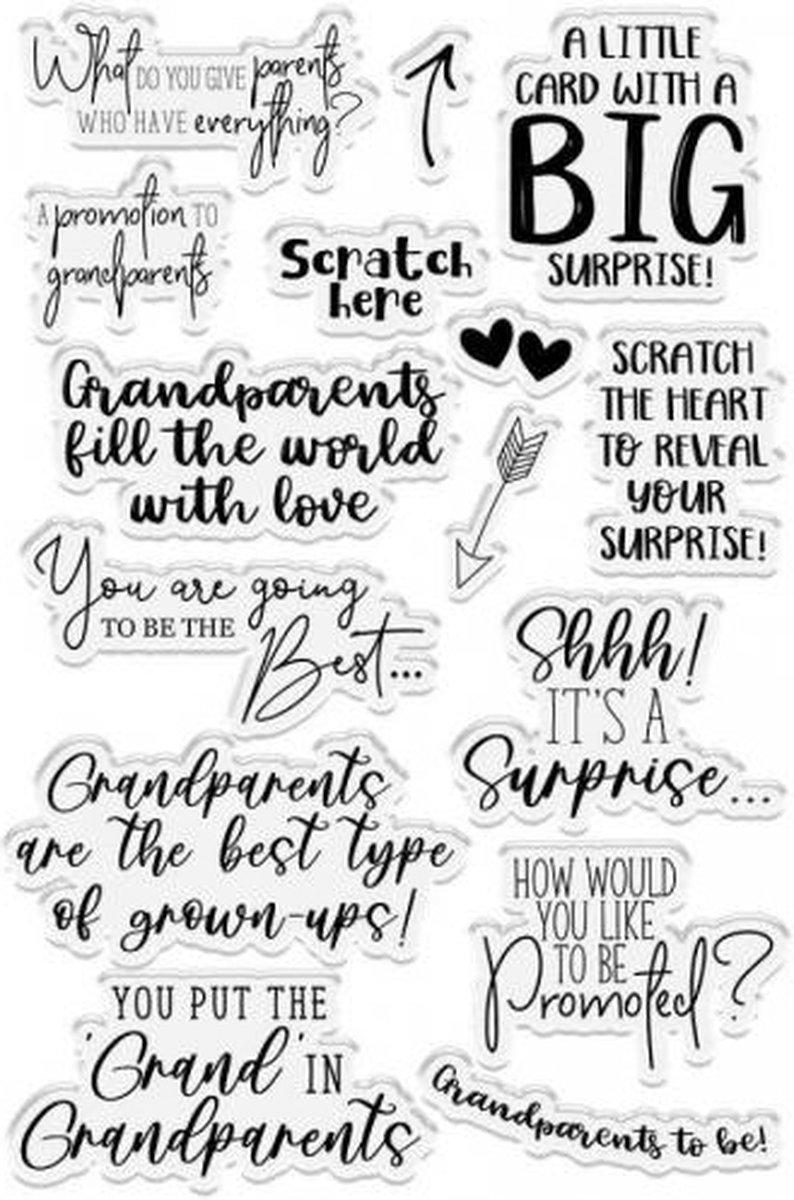 What DO YOU GIVE parents
WHO HAVE everything?
A LITTLE
CARD WITH A
BIG
SURPRISE!
A promotion TO
grandparents
Scratch
here
Grandparents
fill the world
with love
SCRATCH
THE HEART
TO REVEAL
YOUR
SURPRISE!
You are going
TO BE THE
Best...
Shhh!
IT'S A
Surprise...
Grandparents
are the best type
of grown-ups!
HOW WOULD
YOU LIKE
TO BE
Promoted?
YOU PUT THE
'Grand' IN
Grandparents
Grandparents to be!